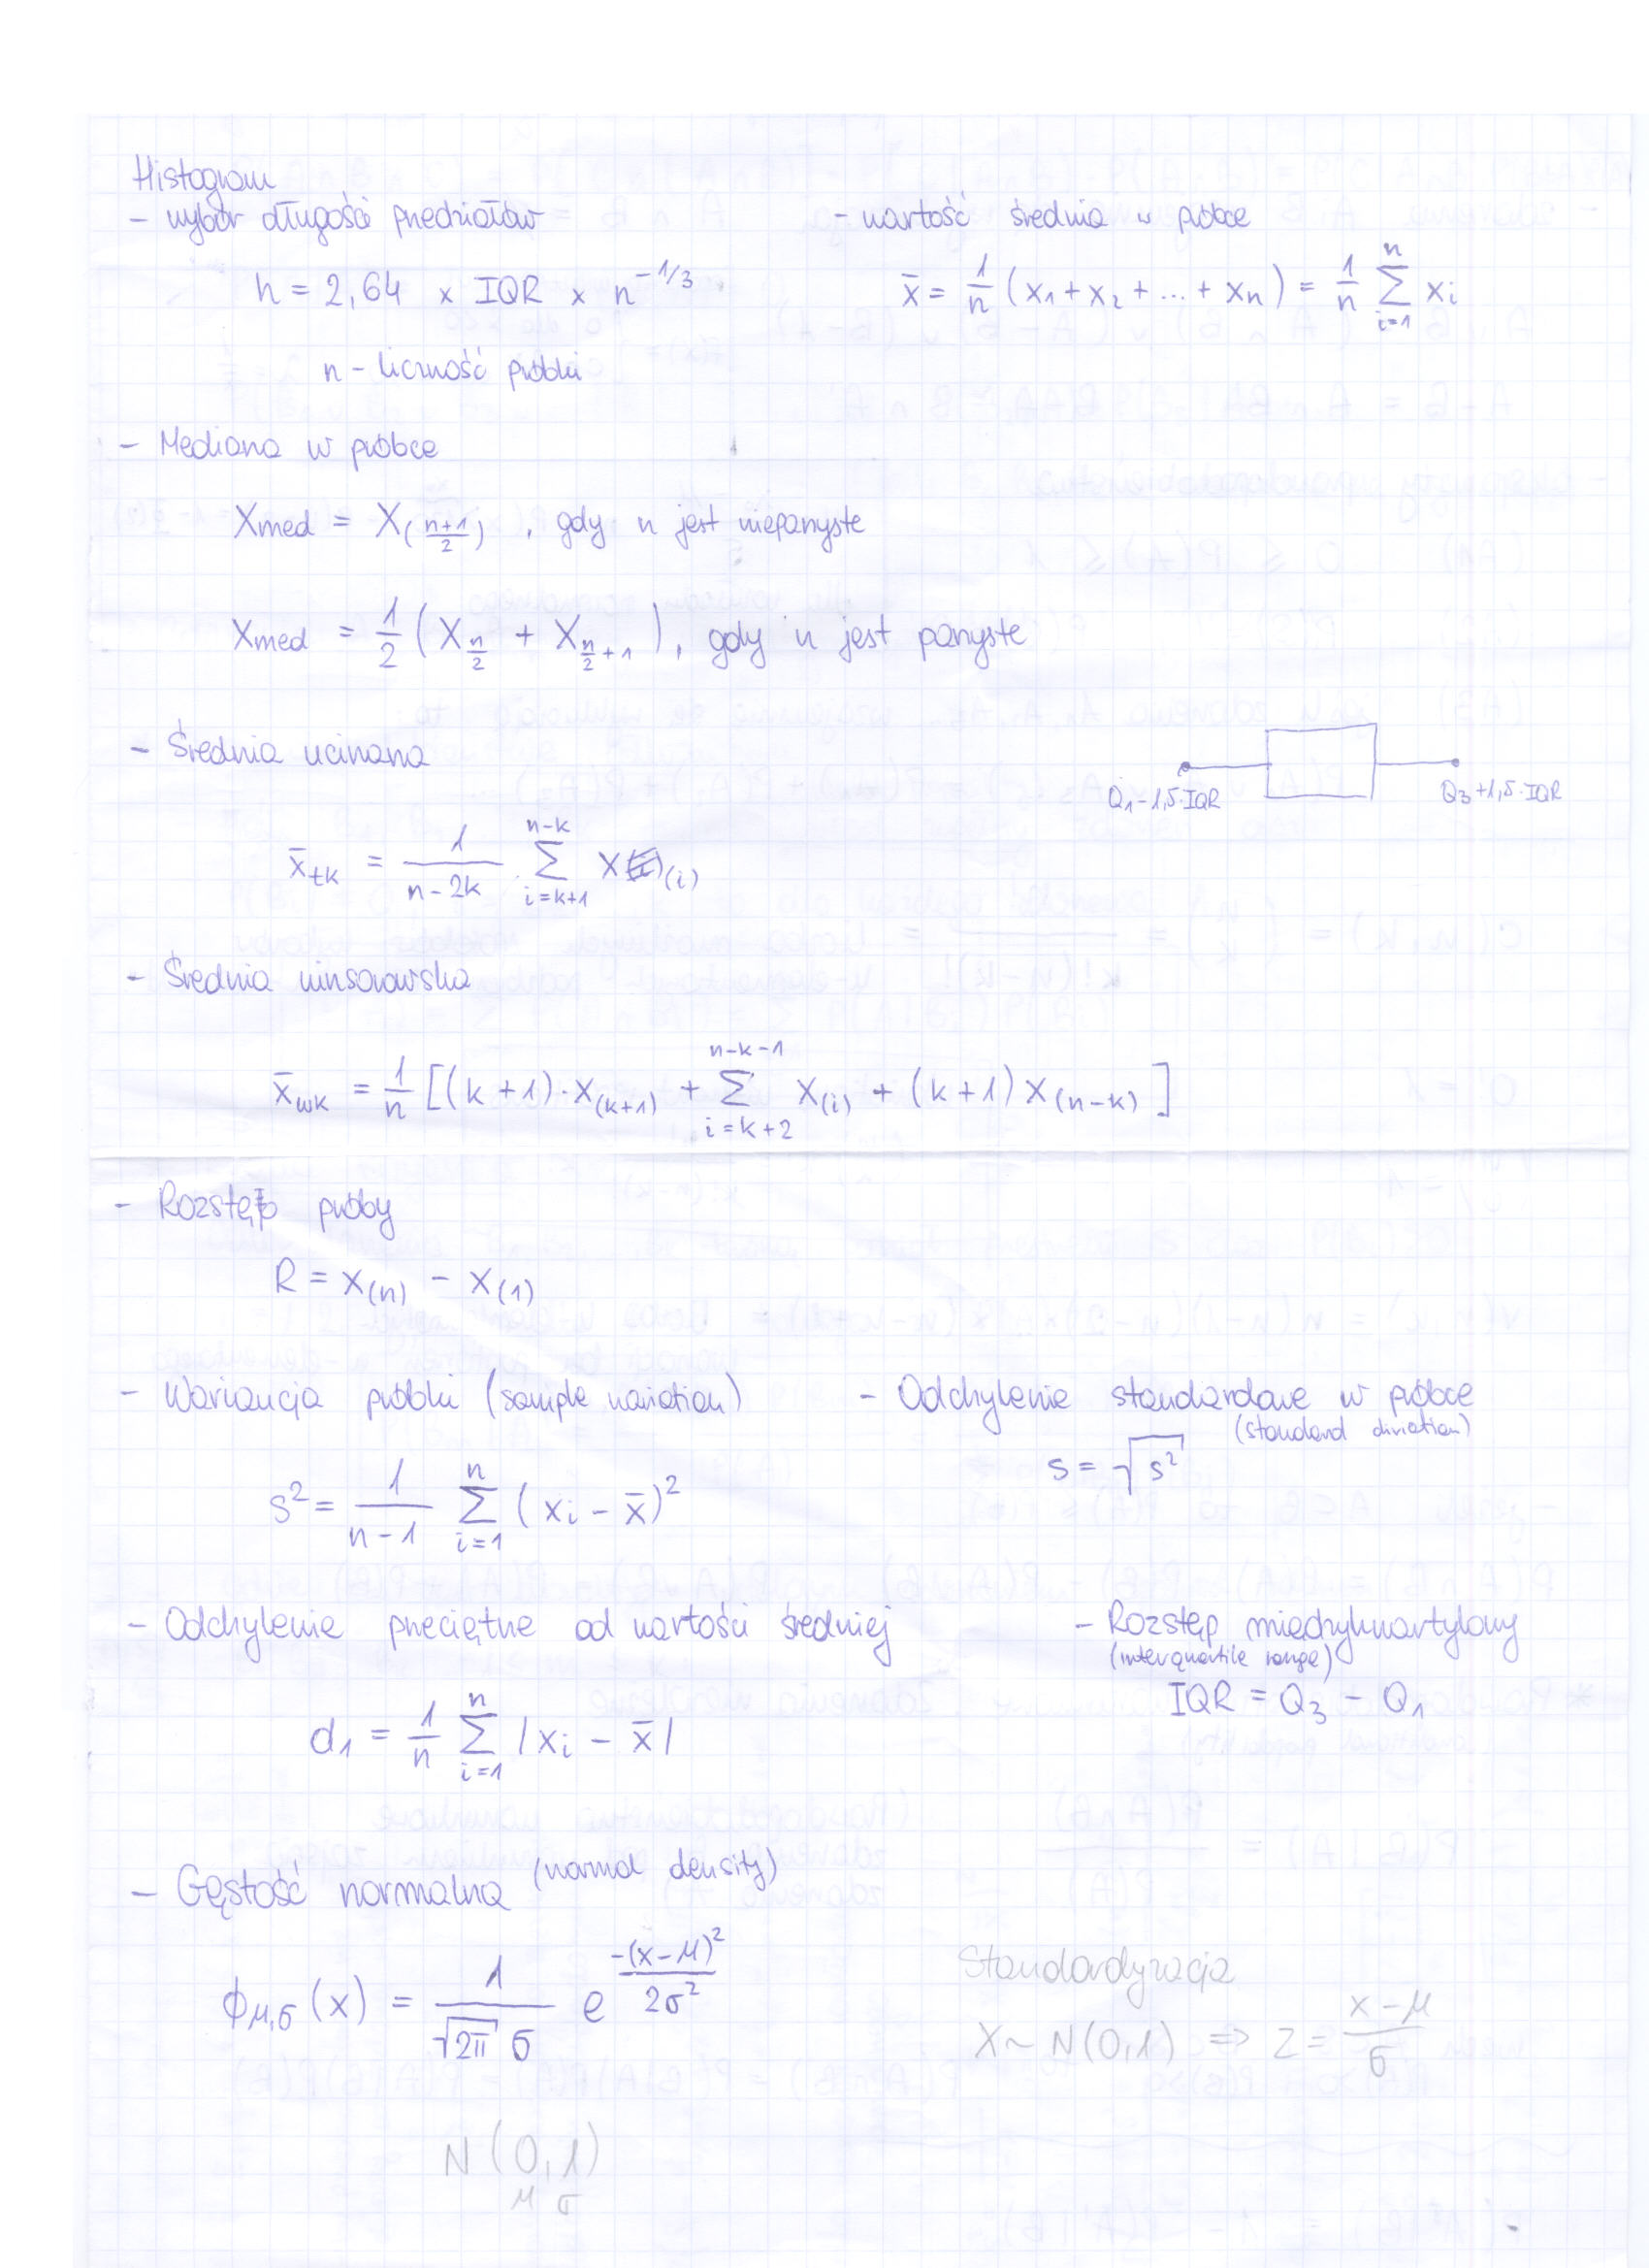 Histogram
- wybór długości przedziałów
h = 2,64 x IQR x n^{-1/3}
n - liczność próbki
- wartość średnia w próbce
x̄ = 1/n (x₁ + x₂ + ... + xₙ) = 1/n Σ_{i=1}^{n} xᵢ
- Mediana w próbce
Xmed = X_{((n+1)/2)} , gdy n jest nieparzyste
Xmed = 1/2 (X_{n/2} + X_{n/2+1}), gdy n jest parzyste
- Średnia ucinana
x̄_{tk} = 1/(n-2k) · Σ_{i=k+1}^{n-k} X_{(i)}
Q₁-1,5·IQR
Q₃+1,5·IQR
- Średnia winsorowska
x̄_{wk} = 1/n [(k+1)·X_{(k+1)} + Σ_{i=k+2}^{n-k-1} X_{(i)} + (k+1) X_{(n-k)}]
- Rozstęp próby
R = X_{(n)} - X_{(1)}
- Wariancja próbki (sample variation)
s² = 1/(n-1) Σ_{i=1}^{n} (xᵢ - x̄)²
- Odchylenie standardowe w próbce
(standard diviation)
s = √s²
- Odchylenie przeciętne od wartości średniej
d₁ = 1/n Σ_{i=1}^{n} |xᵢ - x̄|
- Rozstęp międzykwartylowy
(interquartile range)
IQR = Q₃ - Q₁
- Gęstość normalna (normal density)
ϕ_{μ,σ}(x) = 1/(√2π σ) e^{-(x-μ)²/2σ²}
N(0,1)
μ σ
Standardyzacja
X~N(0,1) => Z = (x-μ)/σ